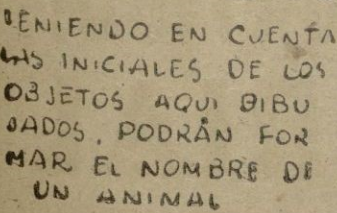 TENIENDO EN CUENTA
LAS INICIALES DE LOS
OBJETOS AQUI DIBU
JADOS, PODRÁN FOR
MAR EL NOMBRE DE
UN ANIMAL